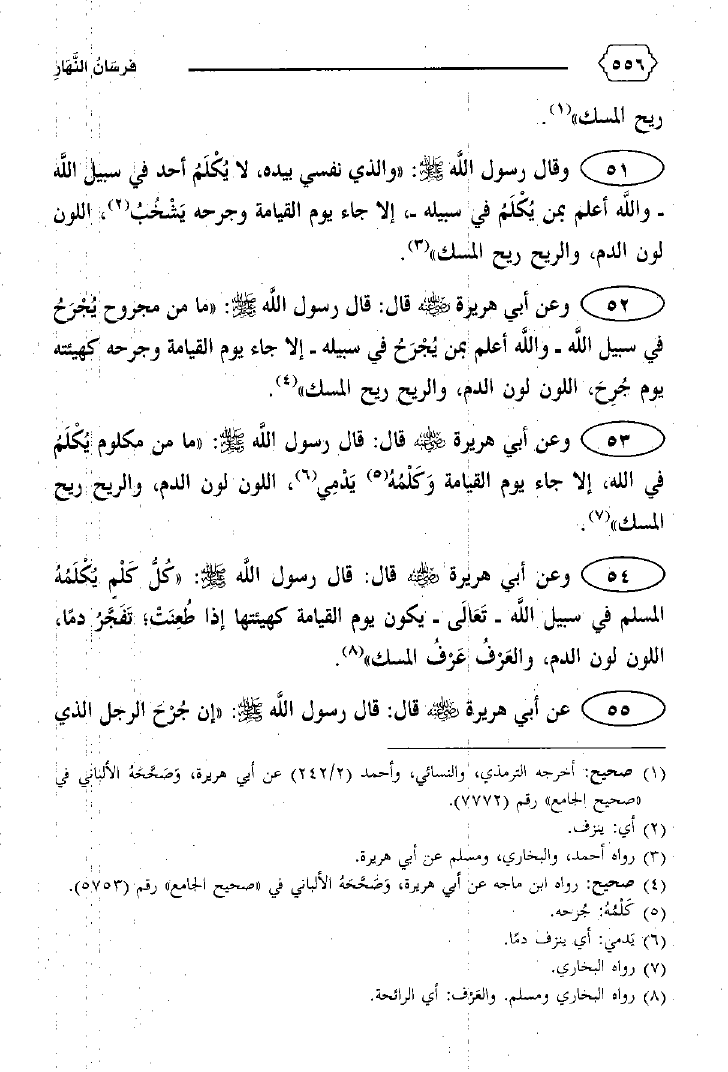 ٥٥٦ فرسَانُ النَّهَارِ
ريح المسك»(١).
٥١ وقال رسول اللَّه ﷺ: «والذي نفسي بيده، لا يُكْلَمُ أحد في سبيل اللَّه
ـ واللَّه أعلم بمن يُكْلَمُ في سبيله ـ، إلا جاء يوم القيامة وجرحه يَشْخُبُ(٢)، اللون
لون الدم، والريح ريح المسك»(٣).
٥٢ وعن أبي هريرة رضي الله عنه قال: قال رسول اللَّه ﷺ: «ما من مجروح يُجْرَحُ
في سبيل اللَّه ـ واللَّه أعلم بمن يُجْرَحُ في سبيله ـ إلا جاء يوم القيامة وجرحه كهيئته
يوم جُرِحَ، اللون لون الدم، والريح ريح المسك»(٤).
٥٣ وعن أبي هريرة رضي الله عنه قال: قال رسول اللَّه ﷺ: «ما من مكلوم يُكْلَمُ
في الله، إلا جاء يوم القيامة وَكَلْمُهُ(٥) يَدْمِي(٦)، اللون لون الدم، والريح ريح
المسك»(٧).
٥٤ وعن أبي هريرة رضي الله عنه قال: قال رسول اللَّه ﷺ: «كُلُّ كَلْمٍ يُكْلَمُهُ
المسلم في سبيل اللَّه ـ تَعَالَى ـ يكون يوم القيامة كهيئتها إذا طُعِنَتْ؛ تَفَجَّرُ دمًا،
اللون لون الدم، والعَرْفُ عَرْفُ المسك»(٨).
٥٥ عن أبي هريرة رضي الله عنه قال: قال رسول اللَّه ﷺ: «إن جُرْحَ الرجل الذي
(١) صحيح: أخرجه الترمذي، والنسائي، وأحمد (٢٤٢/٢) عن أبي هريرة، وَصَحَّحَهُ الألباني في
«صحيح الجامع» رقم (٧٧٧٢).
(٢) أي: ينزف.
(٣) رواه أحمد، والبخاري، ومسلم عن أبي هريرة.
(٤) صحيح: رواه ابن ماجه عن أبي هريرة، وَصَحَّحَهُ الألباني في «صحيح الجامع» رقم (٥٧٥٣).
(٥) كَلْمُهُ: جُرحه.
(٦) يَدمي: أي ينزف دمًا.
(٧) رواه البخاري.
(٨) رواه البخاري ومسلم. والعَرْف: أي الرائحة.